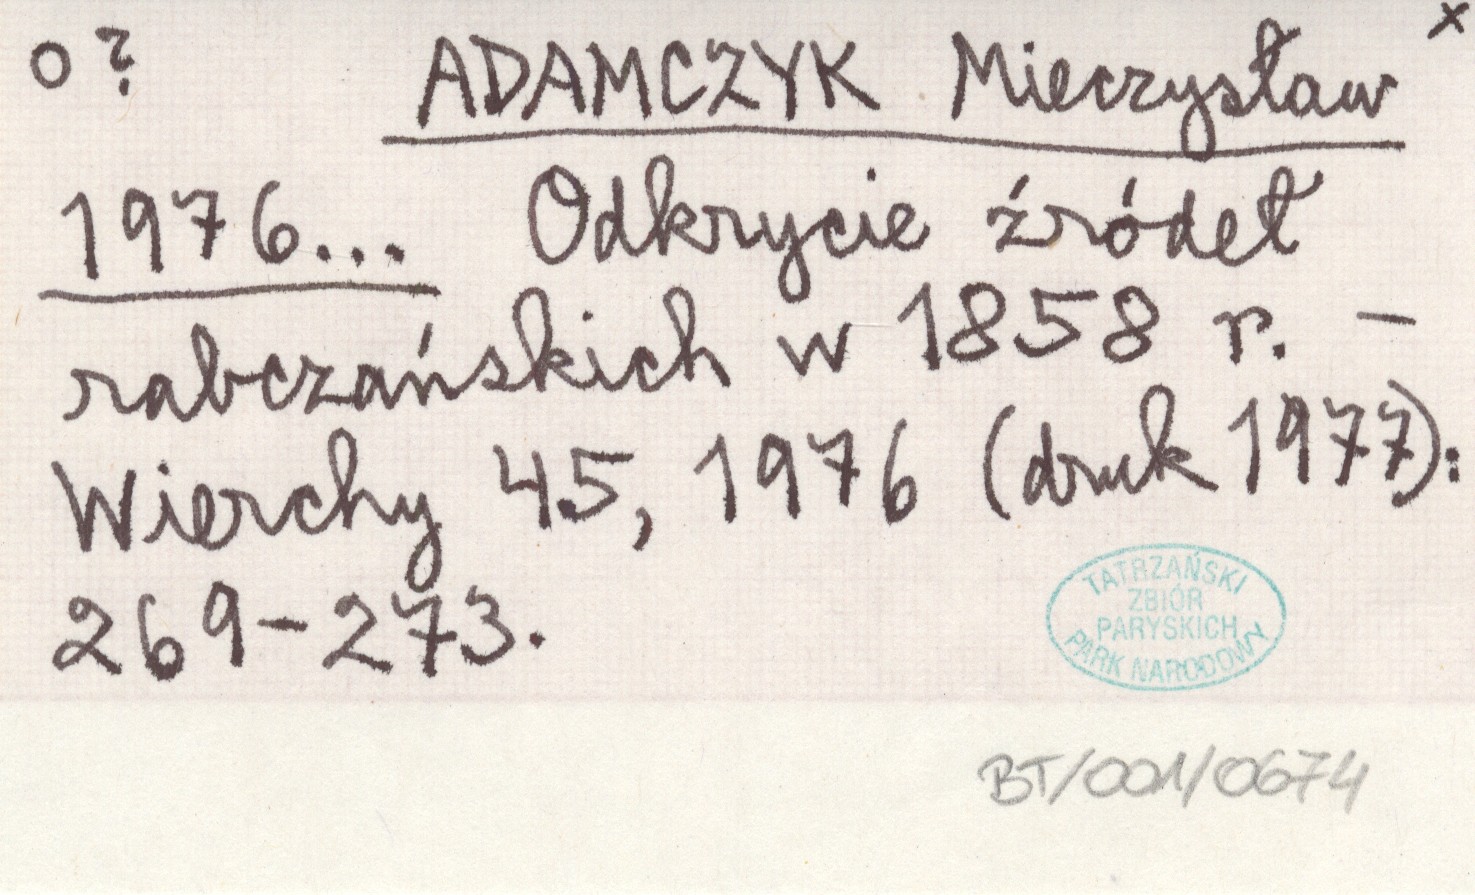 o? ADAMCZYK Mieczysław x
1976... Odkrycie źródeł
rabczańskich w 1858 r. –
Wierchy 45, 1976 (druk 1977):
269–273.
TATRZAŃSKI
ZBIÓR
PARYSKICH
PARK NARODOWY
BT/001/0674